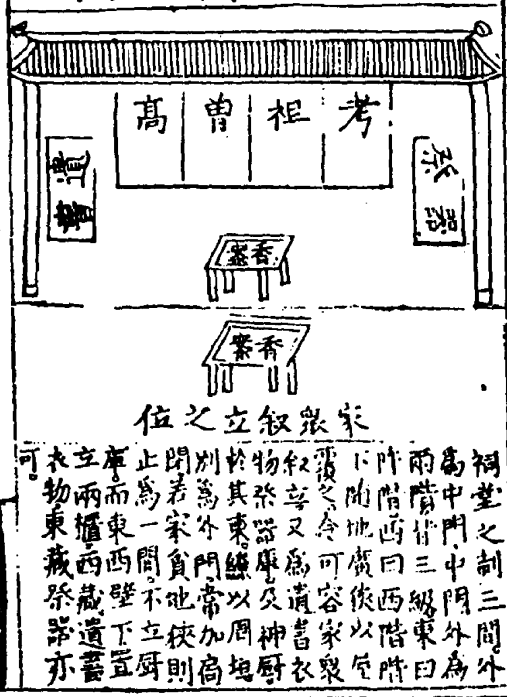 考
祖
曾
高
祭器
遺書
香案
香案
家眾叙立之位
祠堂之制三間外
為中門中門外為
兩階皆三級東曰
阼階西曰西階階
下隨地廣狹以屋
覆之令可容家眾
叙立又為遺書衣
物祭器庫及神厨
於其東繚以周垣
別為外門常加扃
閉若家貧地狹則
止為一間不立厨
庫而東西壁下置
立兩櫃西藏遺書
衣物東藏祭器亦
可